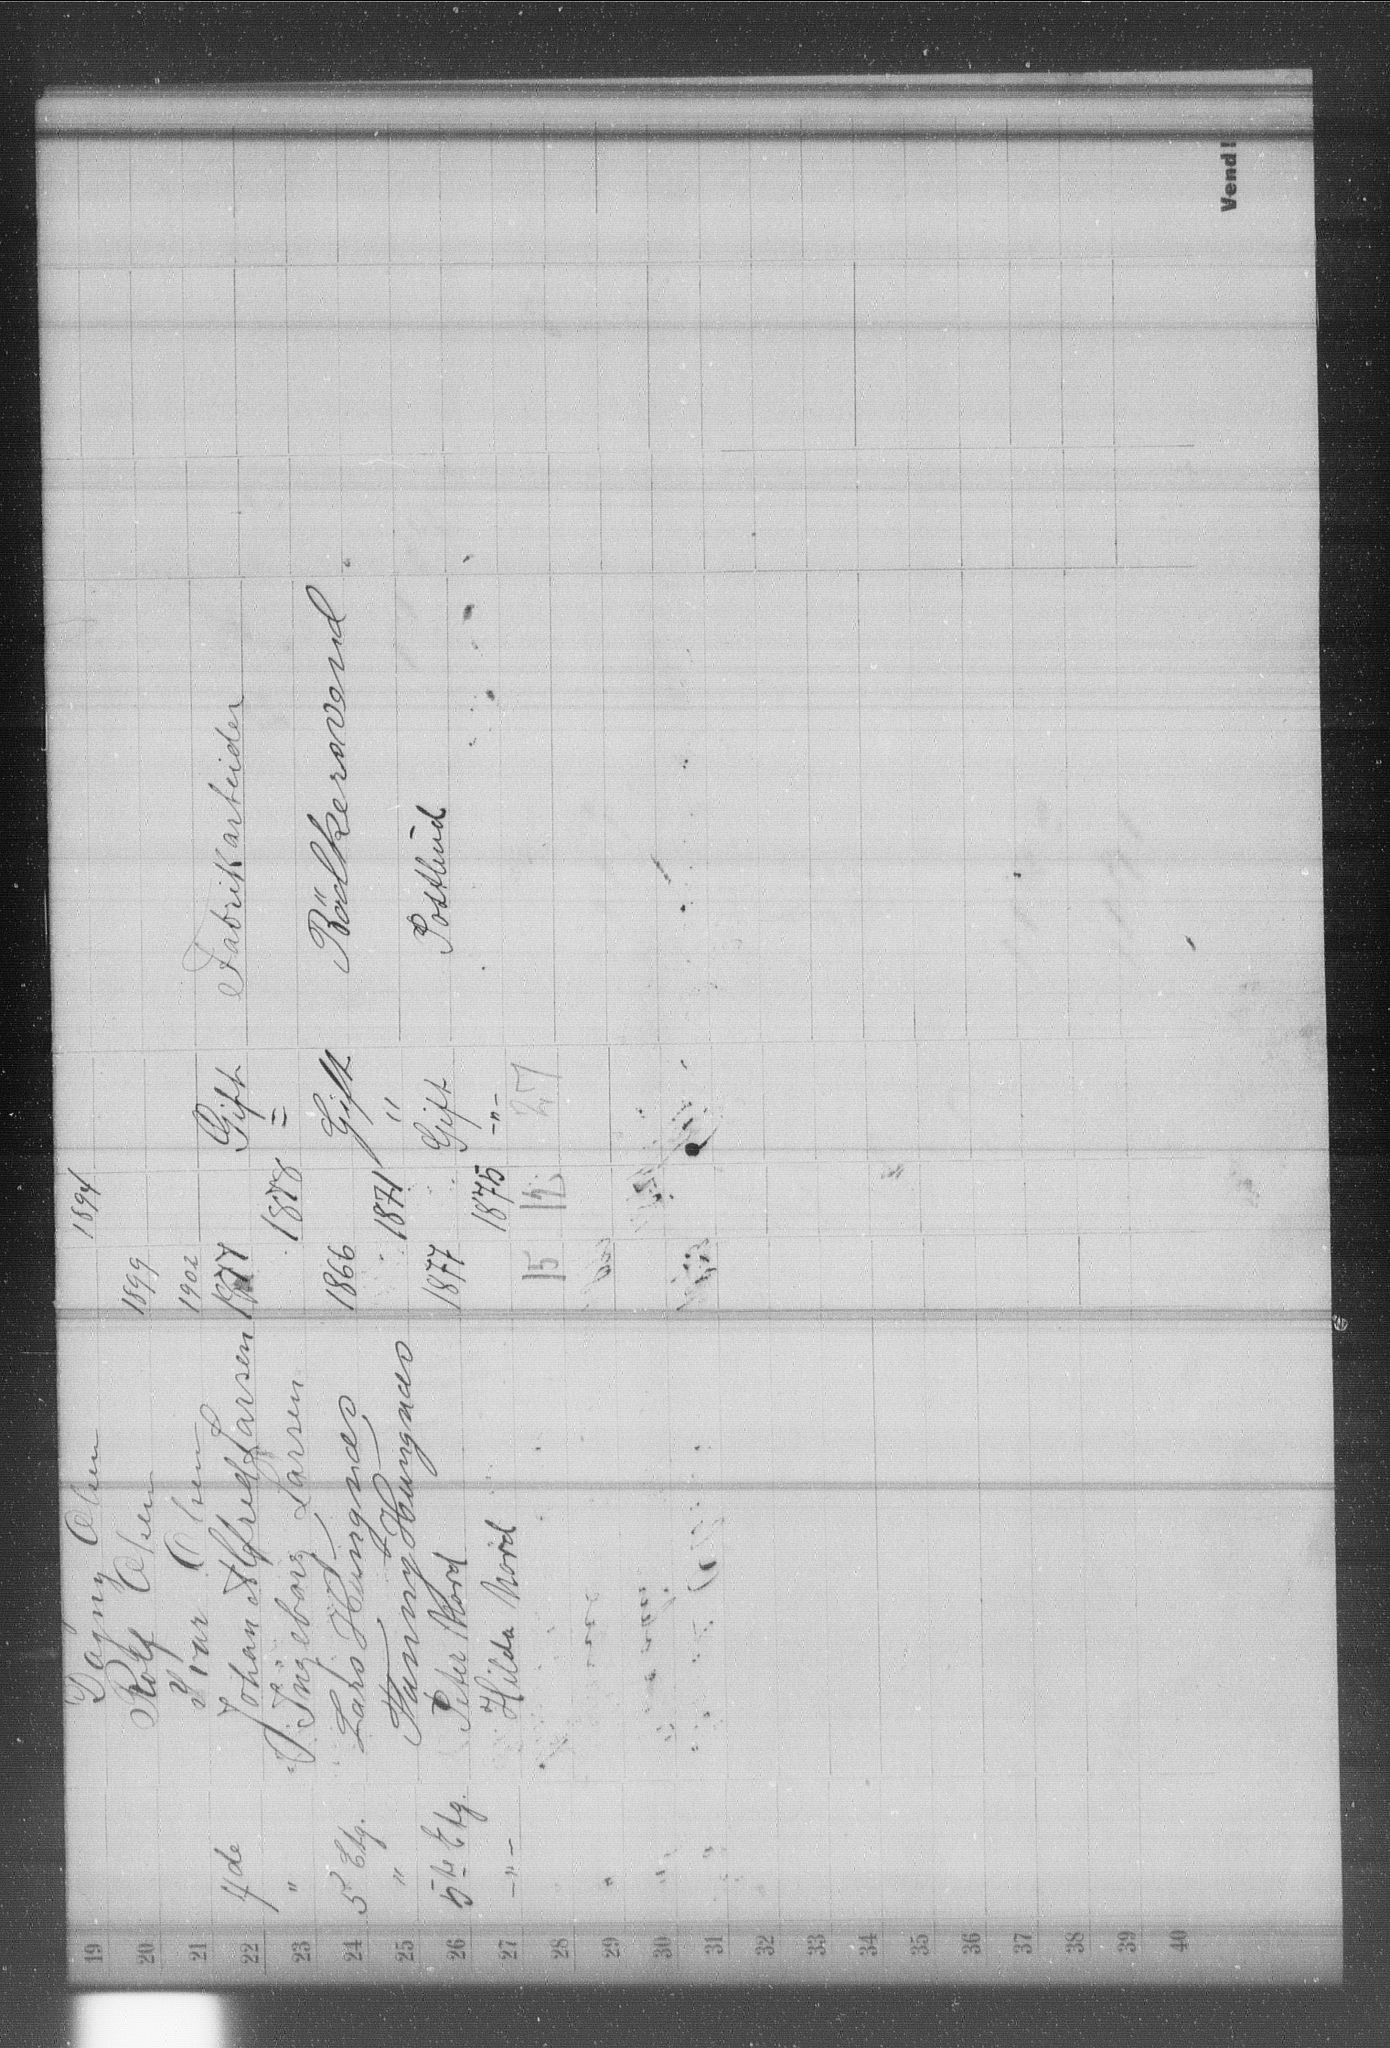 19 Dagny Olsen 1894
20 Rolf Olsen 1899
21 Ivar Olsen 1902
22 4de Johan Alfred Larsen 1877 Gift Fabrikkarbeider
23 " Ingeborg Larsen 1878 "
24 5 Etg. Lars Haugnæs 1866 Gift Bödkersvend
25 " Haugnæs 1871 "
26 5te Etg. Peter Nord 1877 Gift Postbud
27 -"- Hilda Nord 1875 -"-
28 15 12 27
29
30
31
32
33
34
35
36
37
38
39
40
Vend!